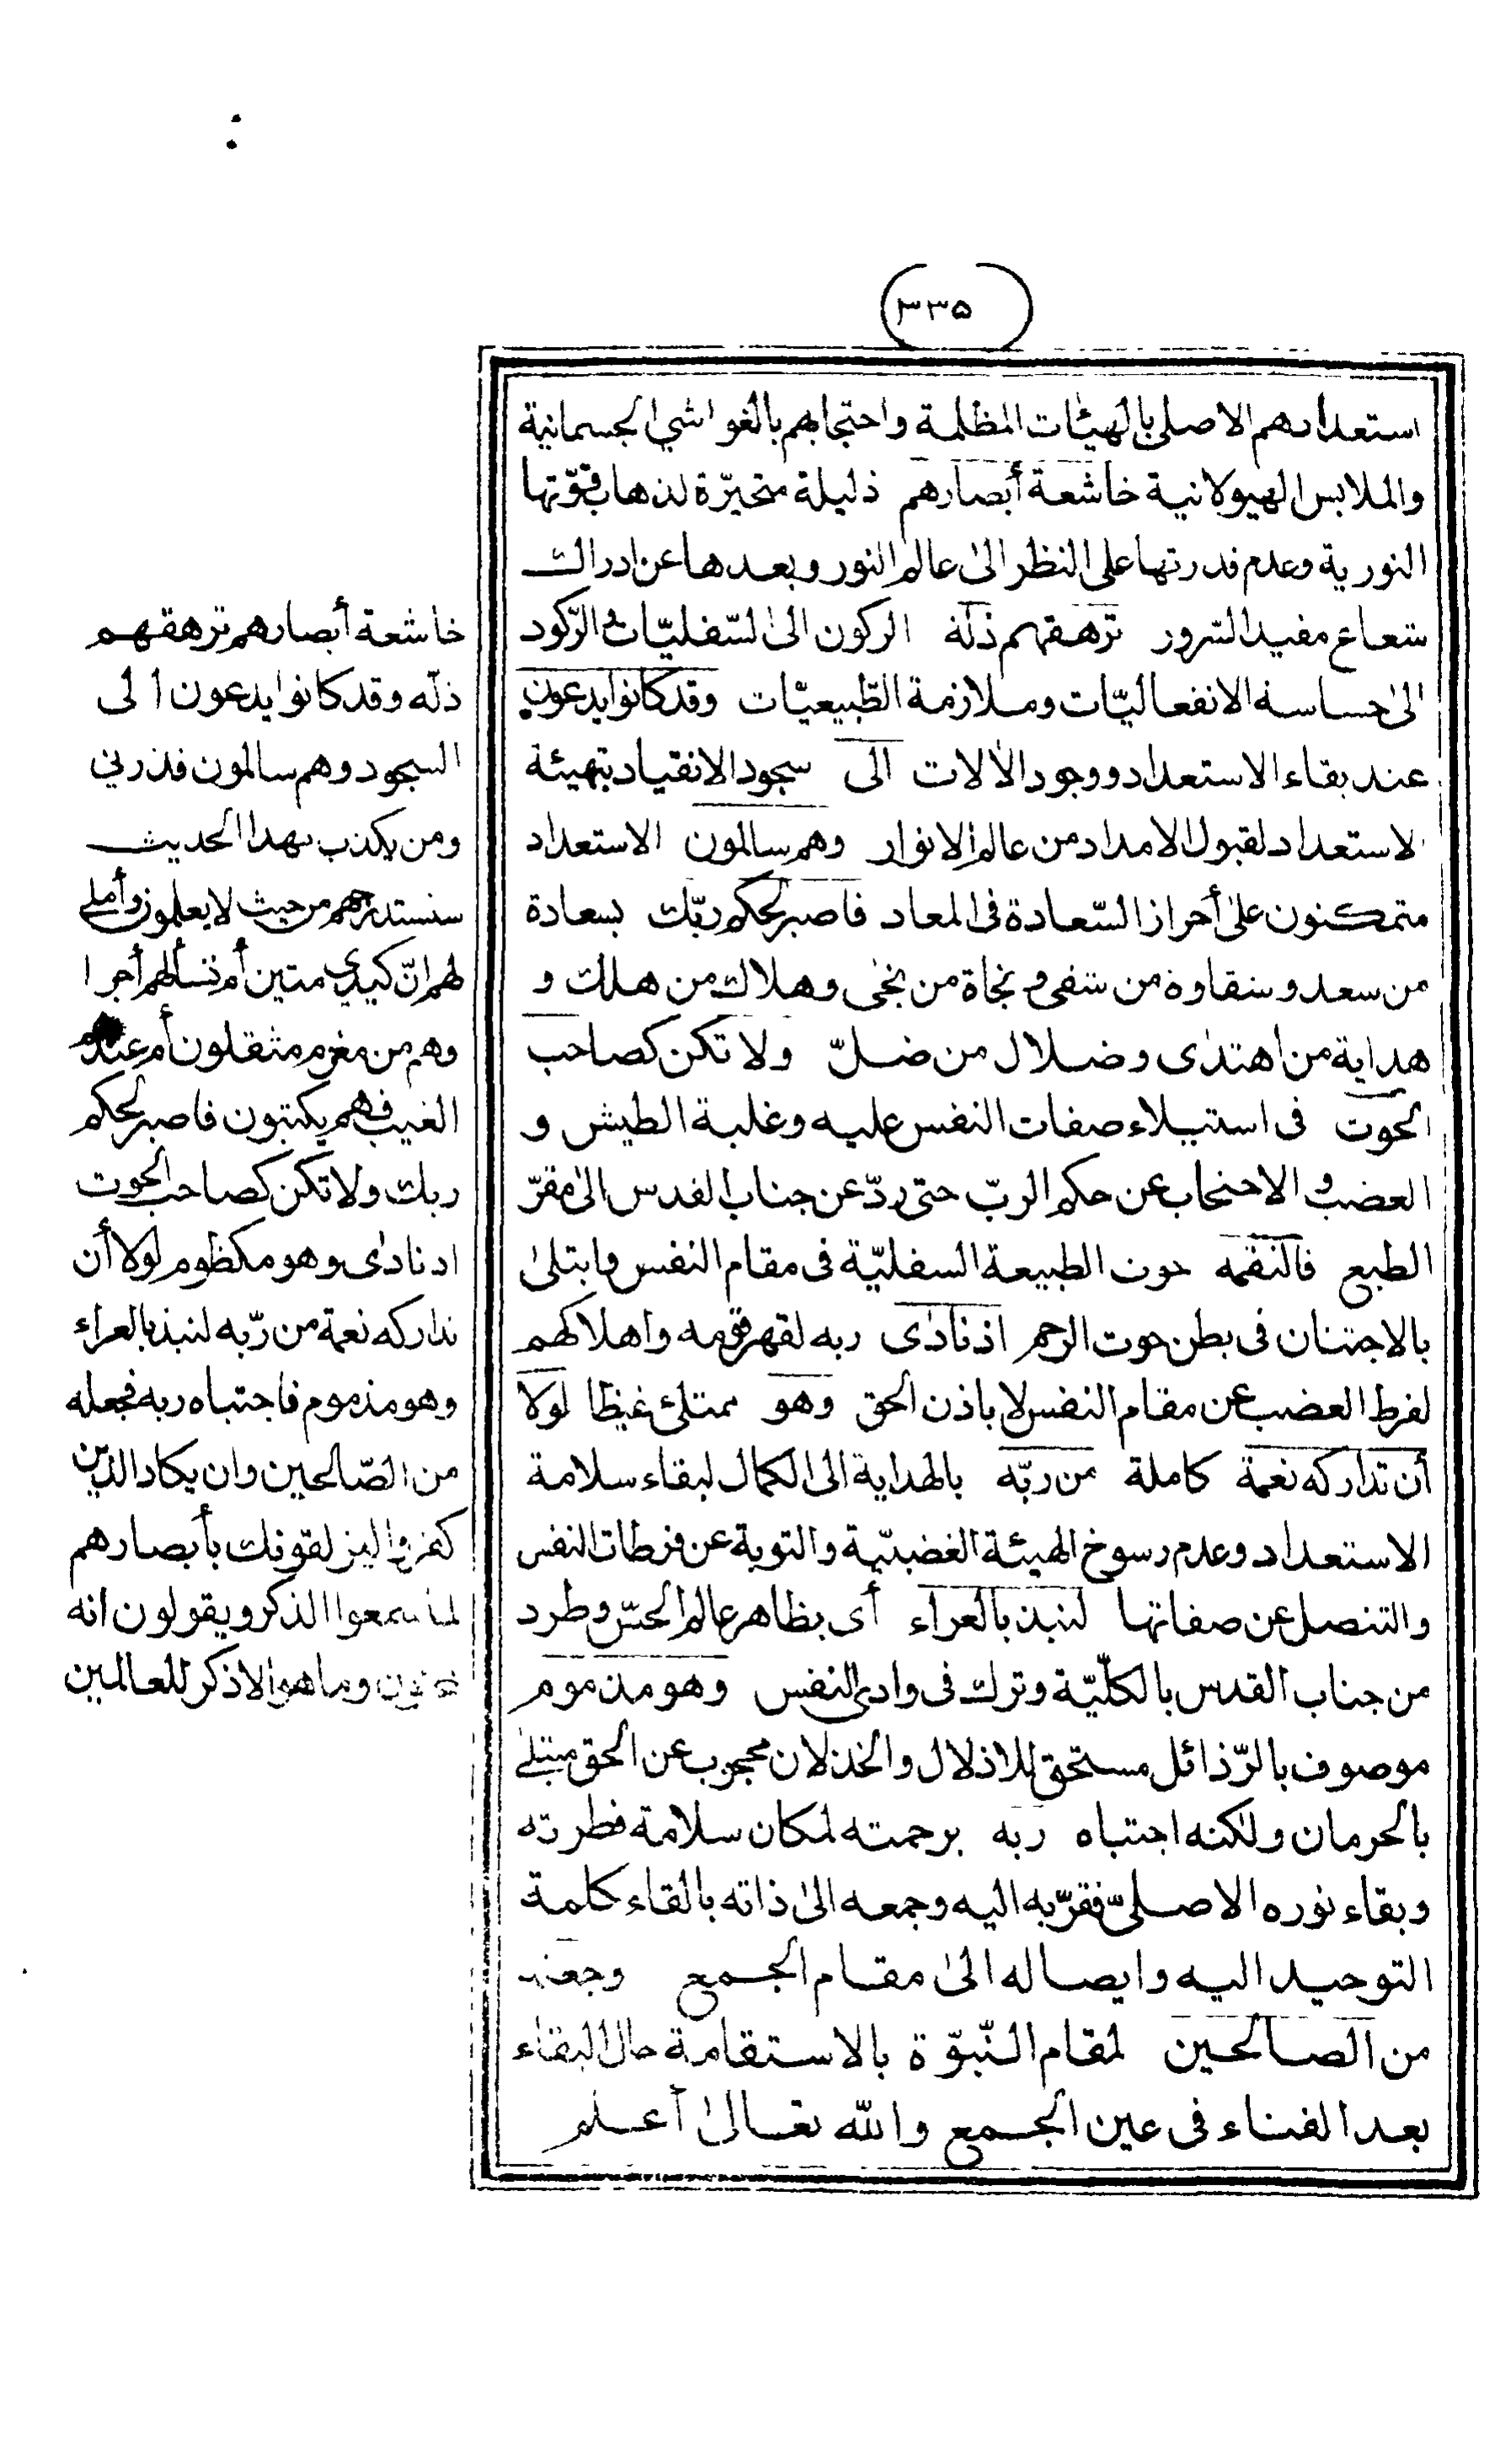 ٣٣٥
استعدادهم الاصلى بالهيئات المظلمة واحتجابهم بالغواشي الجسمانية
والملابس الهيولانية خاشعة أبصارهم ذليلة متحيّرة لذهاب قوّتها
النورية وعدم قدرتها على النظر الى عالم النور وبعدها عن ادراك
شعاع مفيد السّرور ترهقهم ذلّة الركون الى السّفليّات والرّكود
الى خساسة الانفعاليّات وملازمة الطّبيعيّات وقد كانوا يدعون
عند بقاء الاستعداد ووجود الآلات الى سجود الانقياد بتهيئة
لاستعداد لقبول الامداد من عالم الانوار وهم سالمون الاستعداد
متمكنون على أحراز السّعادة فى المعاد فاصبر لحكم ربّك بسعادة
من سعد وشقاوة من شقى و نجاة من نجى وهلاك من هلك و
هداية من اهتدى وضلال من ضلّ ولا تكن كصاحب
الحوت فى استيلاء صفات النفس عليه وغلبة الطيش و
الغضب و الاحتجاب عن حكم الربّ حتى ردّ عن جناب القدس الى مقرّ
الطبع فالتقمه حوت الطبيعة السفليّة فى مقام النفس وابتلى
بالاجتنان فى بطن حوت الرحم اذ نادى ربه لقهر قومه واهلاكهم
لفرط الغضب عن مقام النفس لا باذن الحق وهو ممتلئ غيظا لولا
أن تداركه نعمة كاملة من ربّه بالهداية الى الكمال لبقاء سلامة
الاستعداد وعدم رسوخ الهيئة الغضبيّة والتوبة عن فرطات النفس
والتنصل عن صفاتها لنبذ بالعراء أى بظاهر عالم الحسّ وطرد
من جناب القدس بالكلّيّة وترك فى وادى النفس وهو مذموم
موصوف بالرّذائل مستحق للاذلال والخذلان محجوب عن الحق مبتلى
بالحرمان ولكنه اجتباه ربه برحمته لمكان سلامة فطرته
وبقاء نوره الاصلىّ فقرّبه اليه وجمعه الى ذاته بالقاء كلمة
التوحيد اليه وايصاله الى مقام الجمع وجعله
من الصالحين لمقام النّبوّة بالاستقامة حال البقاء
بعد الفناء فى عين الجمع والله تعالى أعلم
خاشعة أبصارهم ترهقهم
ذلّه وقد كانوا يدعون الى
السجود وهم سالمون فذرنى
ومن يكذب بهذا الحديث
سنستدرجهم من حيث لا يعلمون وأملى
لهم انّ كيدى متين أم تسألهم أجرا
وهم من مغرم مثقلون أم عندهم
الغيب فهم يكتبون فاصبر لحكم
ربك ولا تكن كصاحب الحوت
اذ نادى وهو مكظوم لولا أن
تداركه نعمة من ربّه لنبذ بالعراء
وهو مذموم فاجتباه ربه فجعله
من الصّالحين وان يكاد الذين
كفروا ليزلقونك بأبصارهم
لما سمعوا الذكر ويقولون انه
وما هو الا ذكر للعالمين